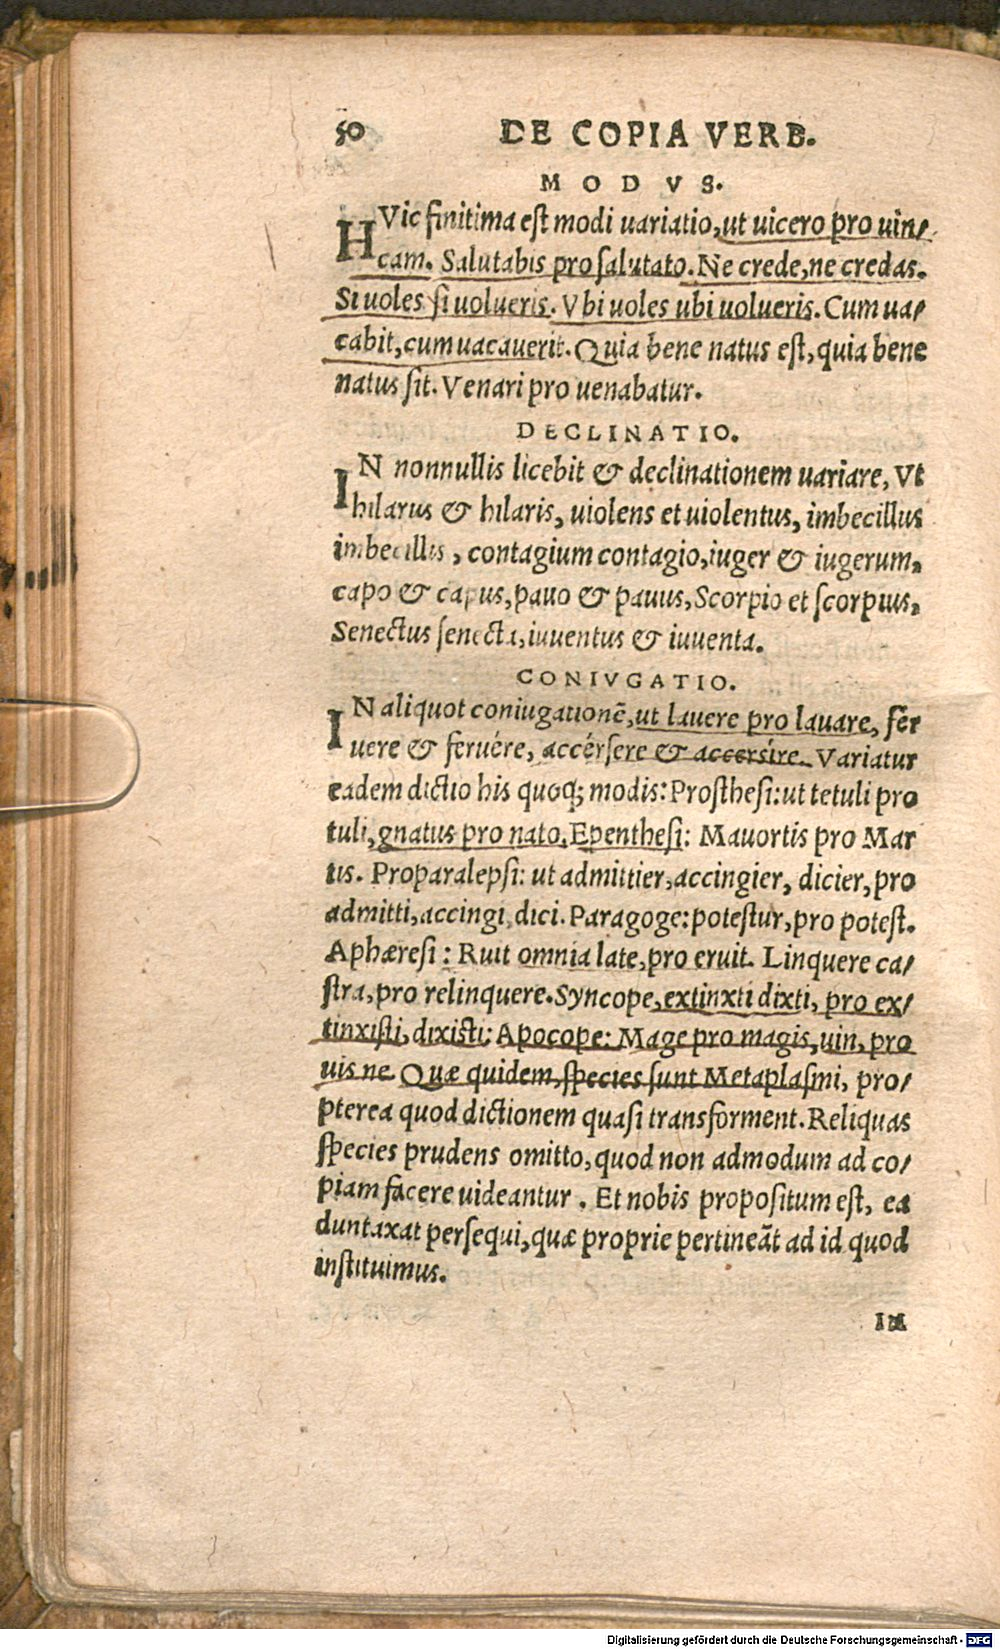 50 DE COPIA VERB.
MODVS.
HVic finitima est modi uariatio, ut uicero pro uin/
cam. Salutabis pro salutato. Ne crede, ne credas.
Si uoles si uolueris. Vbi uoles ubi uolueris. Cum ua/
cabit, cum uacauerit. Quia bene natus est, quia bene
natus sit. Venari pro uenabatur.
DECLINATIO.
IN nonnullis licebit & declinationem uariare, Vt
hilarus & hilaris, uiolens et uiolentus, imbecillus
imbecillis, contagium contagio, iuger & iugerum,
capo & capus, pauo & pauus, Scorpio et scorpius,
Senectus senecta, iuuentus & iuuenta.
CONIVGATIO.
IN aliquot coniugationē, ut lauere pro lauare, fer
uere & feruére, accérsere & accersíre. Variatur
eadem dictio his quoq; modis: Prosthesi: ut tetuli pro
tuli, gnatus pro nato. Epenthesi: Mauortis pro Mar
tis. Proparalepsi: ut admittier, accingier, dicier, pro
admitti, accingi, dici. Paragoge: potestur, pro potest.
Aphæresi: Ruit omnia late, pro eruit. Linquere ca/
stra, pro relinquere. Syncope, extinxti dixti, pro ex/
tinxisti, dixisti: Apocope: Mage pro magis, uin, pro
uis ne. Quæ quidem, species sunt Metaplasmi, pro/
pterea quod dictionem quasi transforment. Reliquas
species prudens omitto, quod non admodum ad co/
piam facere uideantur. Et nobis propositum est, ea
duntaxat persequi, quæ proprie pertineāt ad id quod
instituimus.
IM
Digitalisierung gefördert durch die Deutsche Forschungsgemeinschaft - DFG